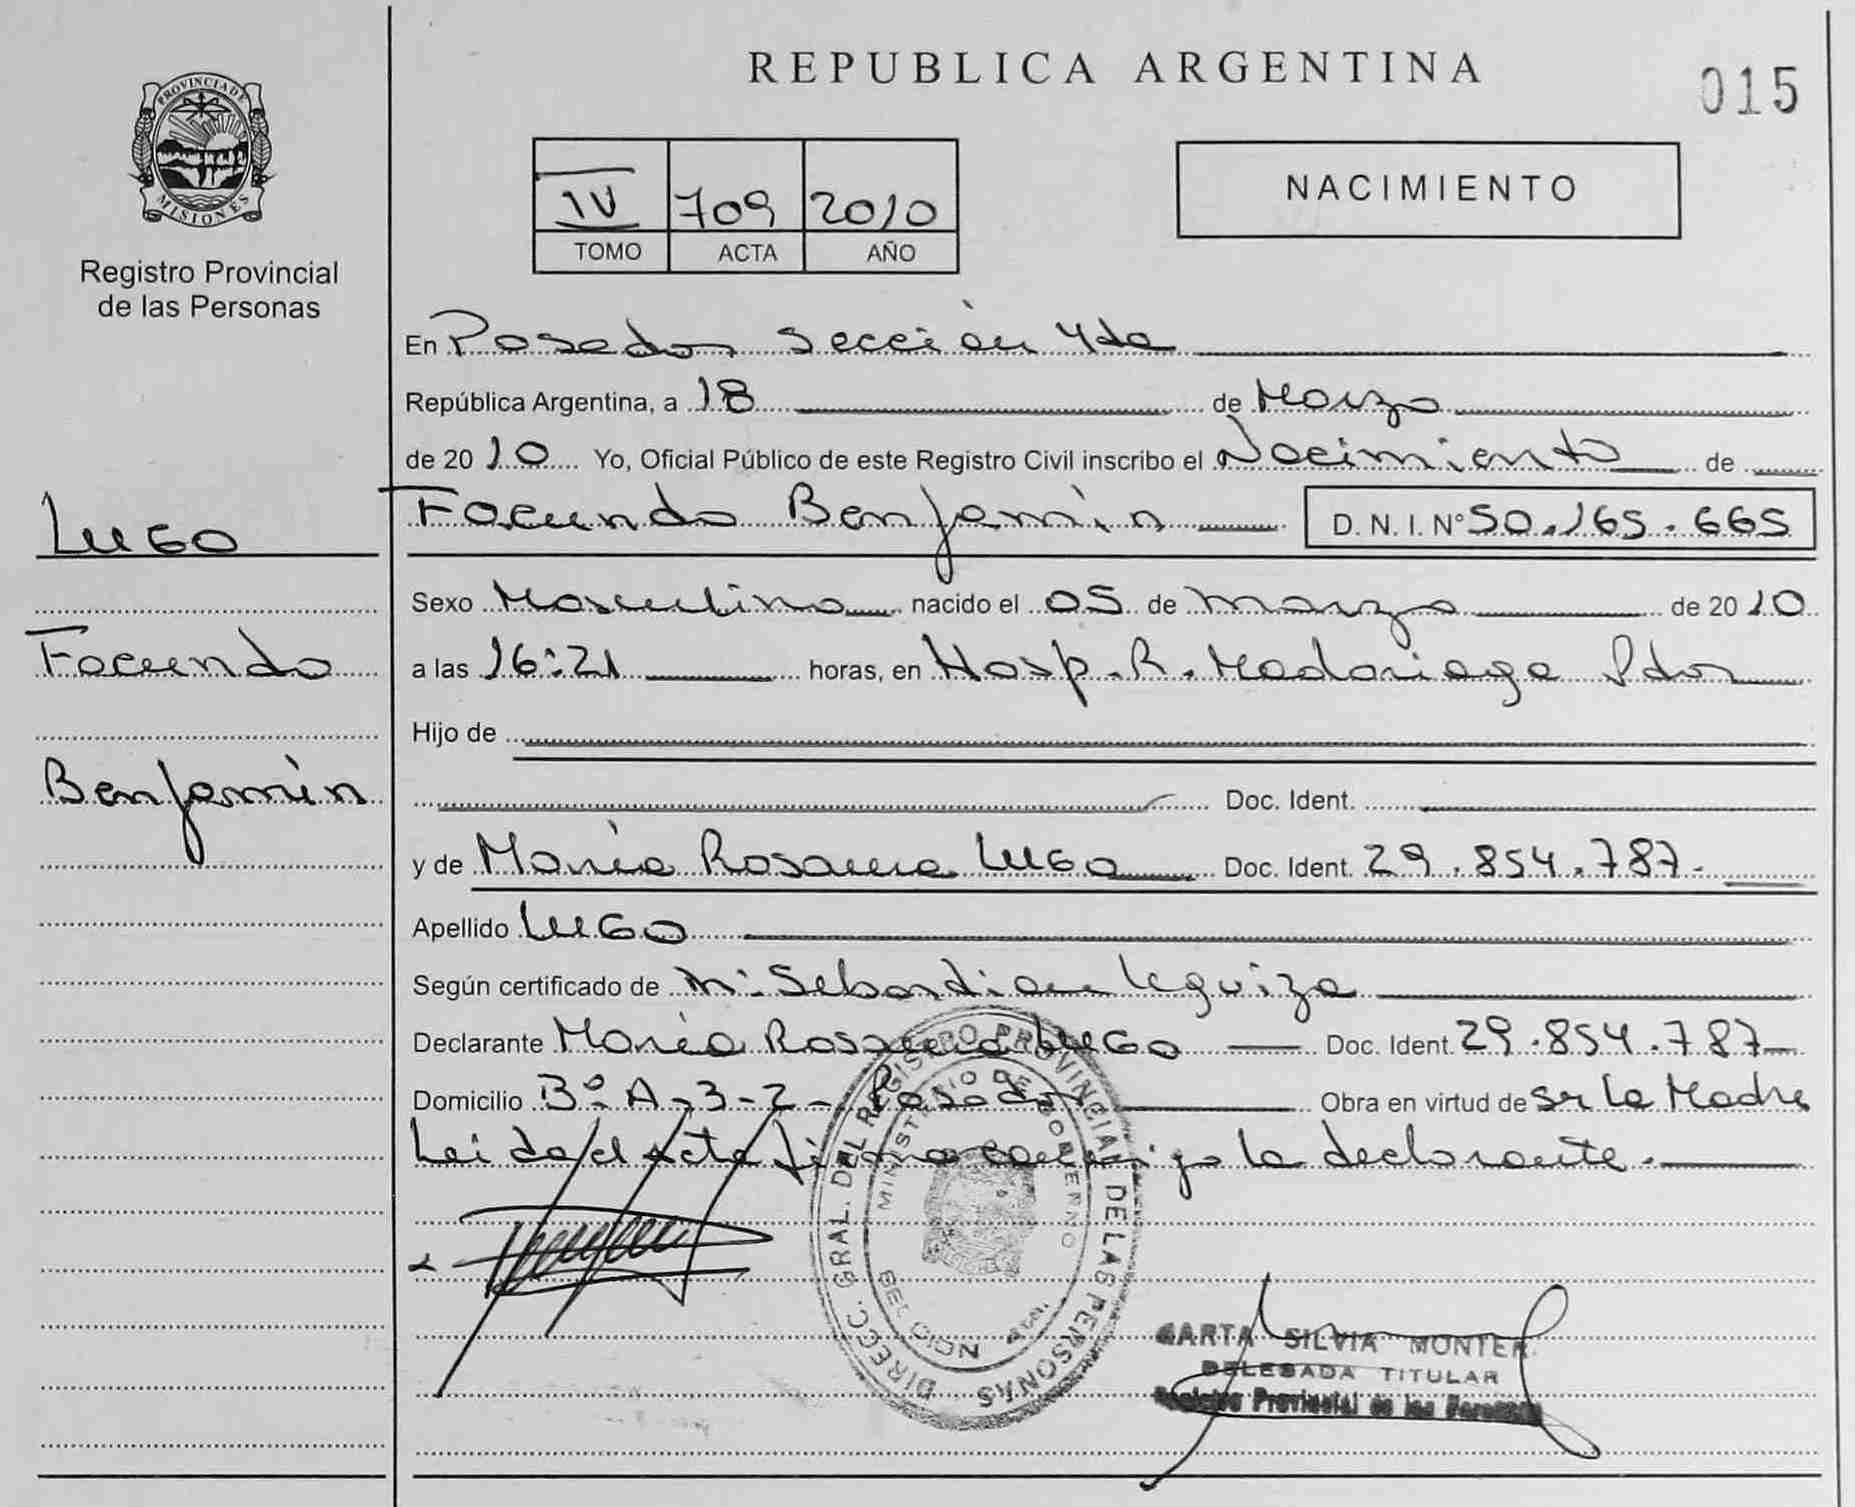 REPUBLICA ARGENTINA
015
PROVINCIA DE
MISIONES
Registro Provincial
de las Personas
IV 709 2010
TOMO ACTA AÑO
NACIMIENTO
En Posadas Sección 4da
República Argentina, a 18 de Marzo
de 2010 Yo, Oficial Público de este Registro Civil inscribo el Nacimiento de
LUGO
Facundo Benjamín D. N. I. Nº 50.165.665
Sexo Masculino nacido el 05 de marzo de 2010
Facundo
a las 16:21 horas, en Hosp. R. Madariaga Pdas
Hijo de
Benjamín
Doc. Ident.
y de María Rosana LUGO Doc. Ident. 29.854.787.
Apellido LUGO
Según certificado de
Declarante María Rosana LUGO Doc. Ident. 29.854.787
Domicilio Bº A-3-2- Posadas Obra en virtud de ser la Madre
Leida el Acta firma conmigo la declarante.
DIRECC. GRAL. DEL REGISTRO PROVINCIAL DE LAS PERSONAS
MINISTERIO DE GOBIERNO
SILVIA MONTE
DELEGADA TITULAR
Registro Provincial de las Personas